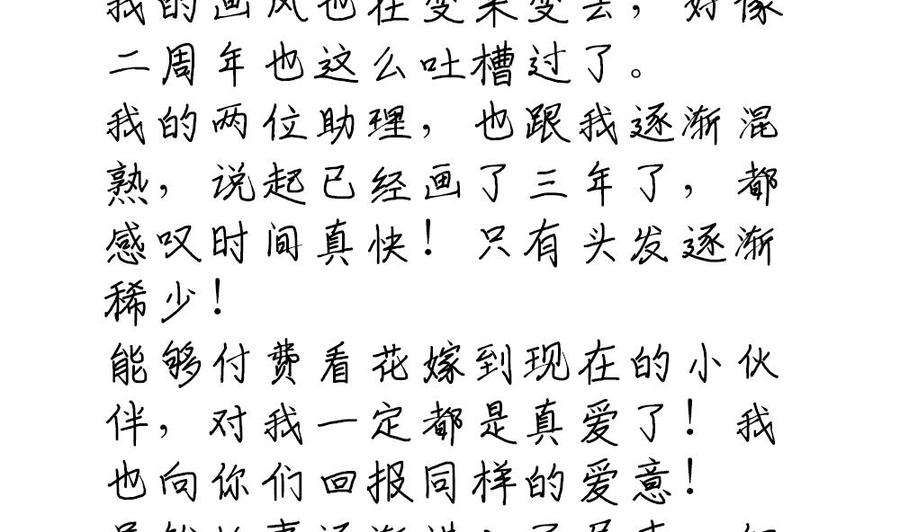 我的画风也在变来变去，好像
二周年也这么吐槽过了。
我的两位助理，也跟我逐渐混
熟，说起已经画了三年了，都
感叹时间真快！只有头发逐渐
稀少！
能够付费看花嫁到现在的小伙
伴，对我一定都是真爱了！我
也向你们回报同样的爱意！